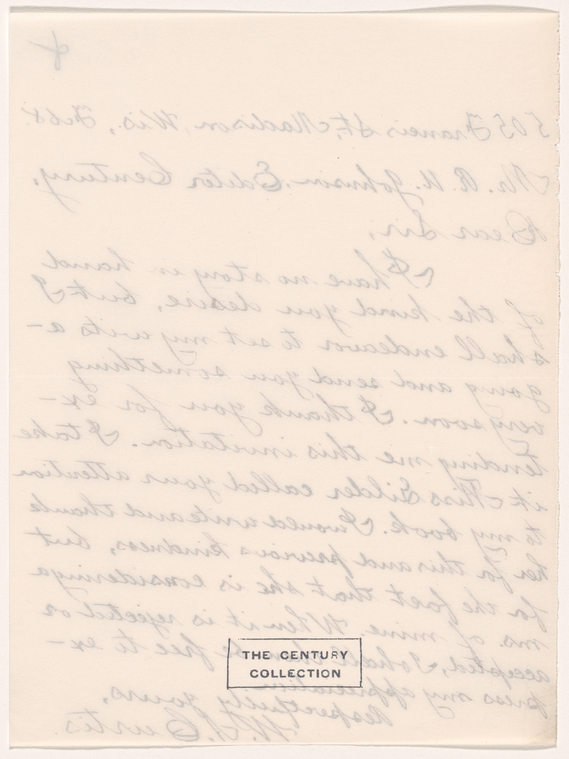 4
505 Francis St, Madison, Wis., Feb 8.
Mr. R. U. Johnson, Editor Century,
Dear Sir,
I have no story in hand
of the kind you desire, but I
shall endeavor to set my wits a-
going and send you something
very soon. I thank you for ex-
tending me this invitation. I take
it Miss Gilder called your attention
to my book. I would write and thank
her for this and previous kindness, but
for the fact that she is considering a
ms. of mine. When it is rejected or
accepted, I shall be free to ex-
press my appreciation.
Respectfully yours,
W. Curtis.
THE CENTURY
COLLECTION